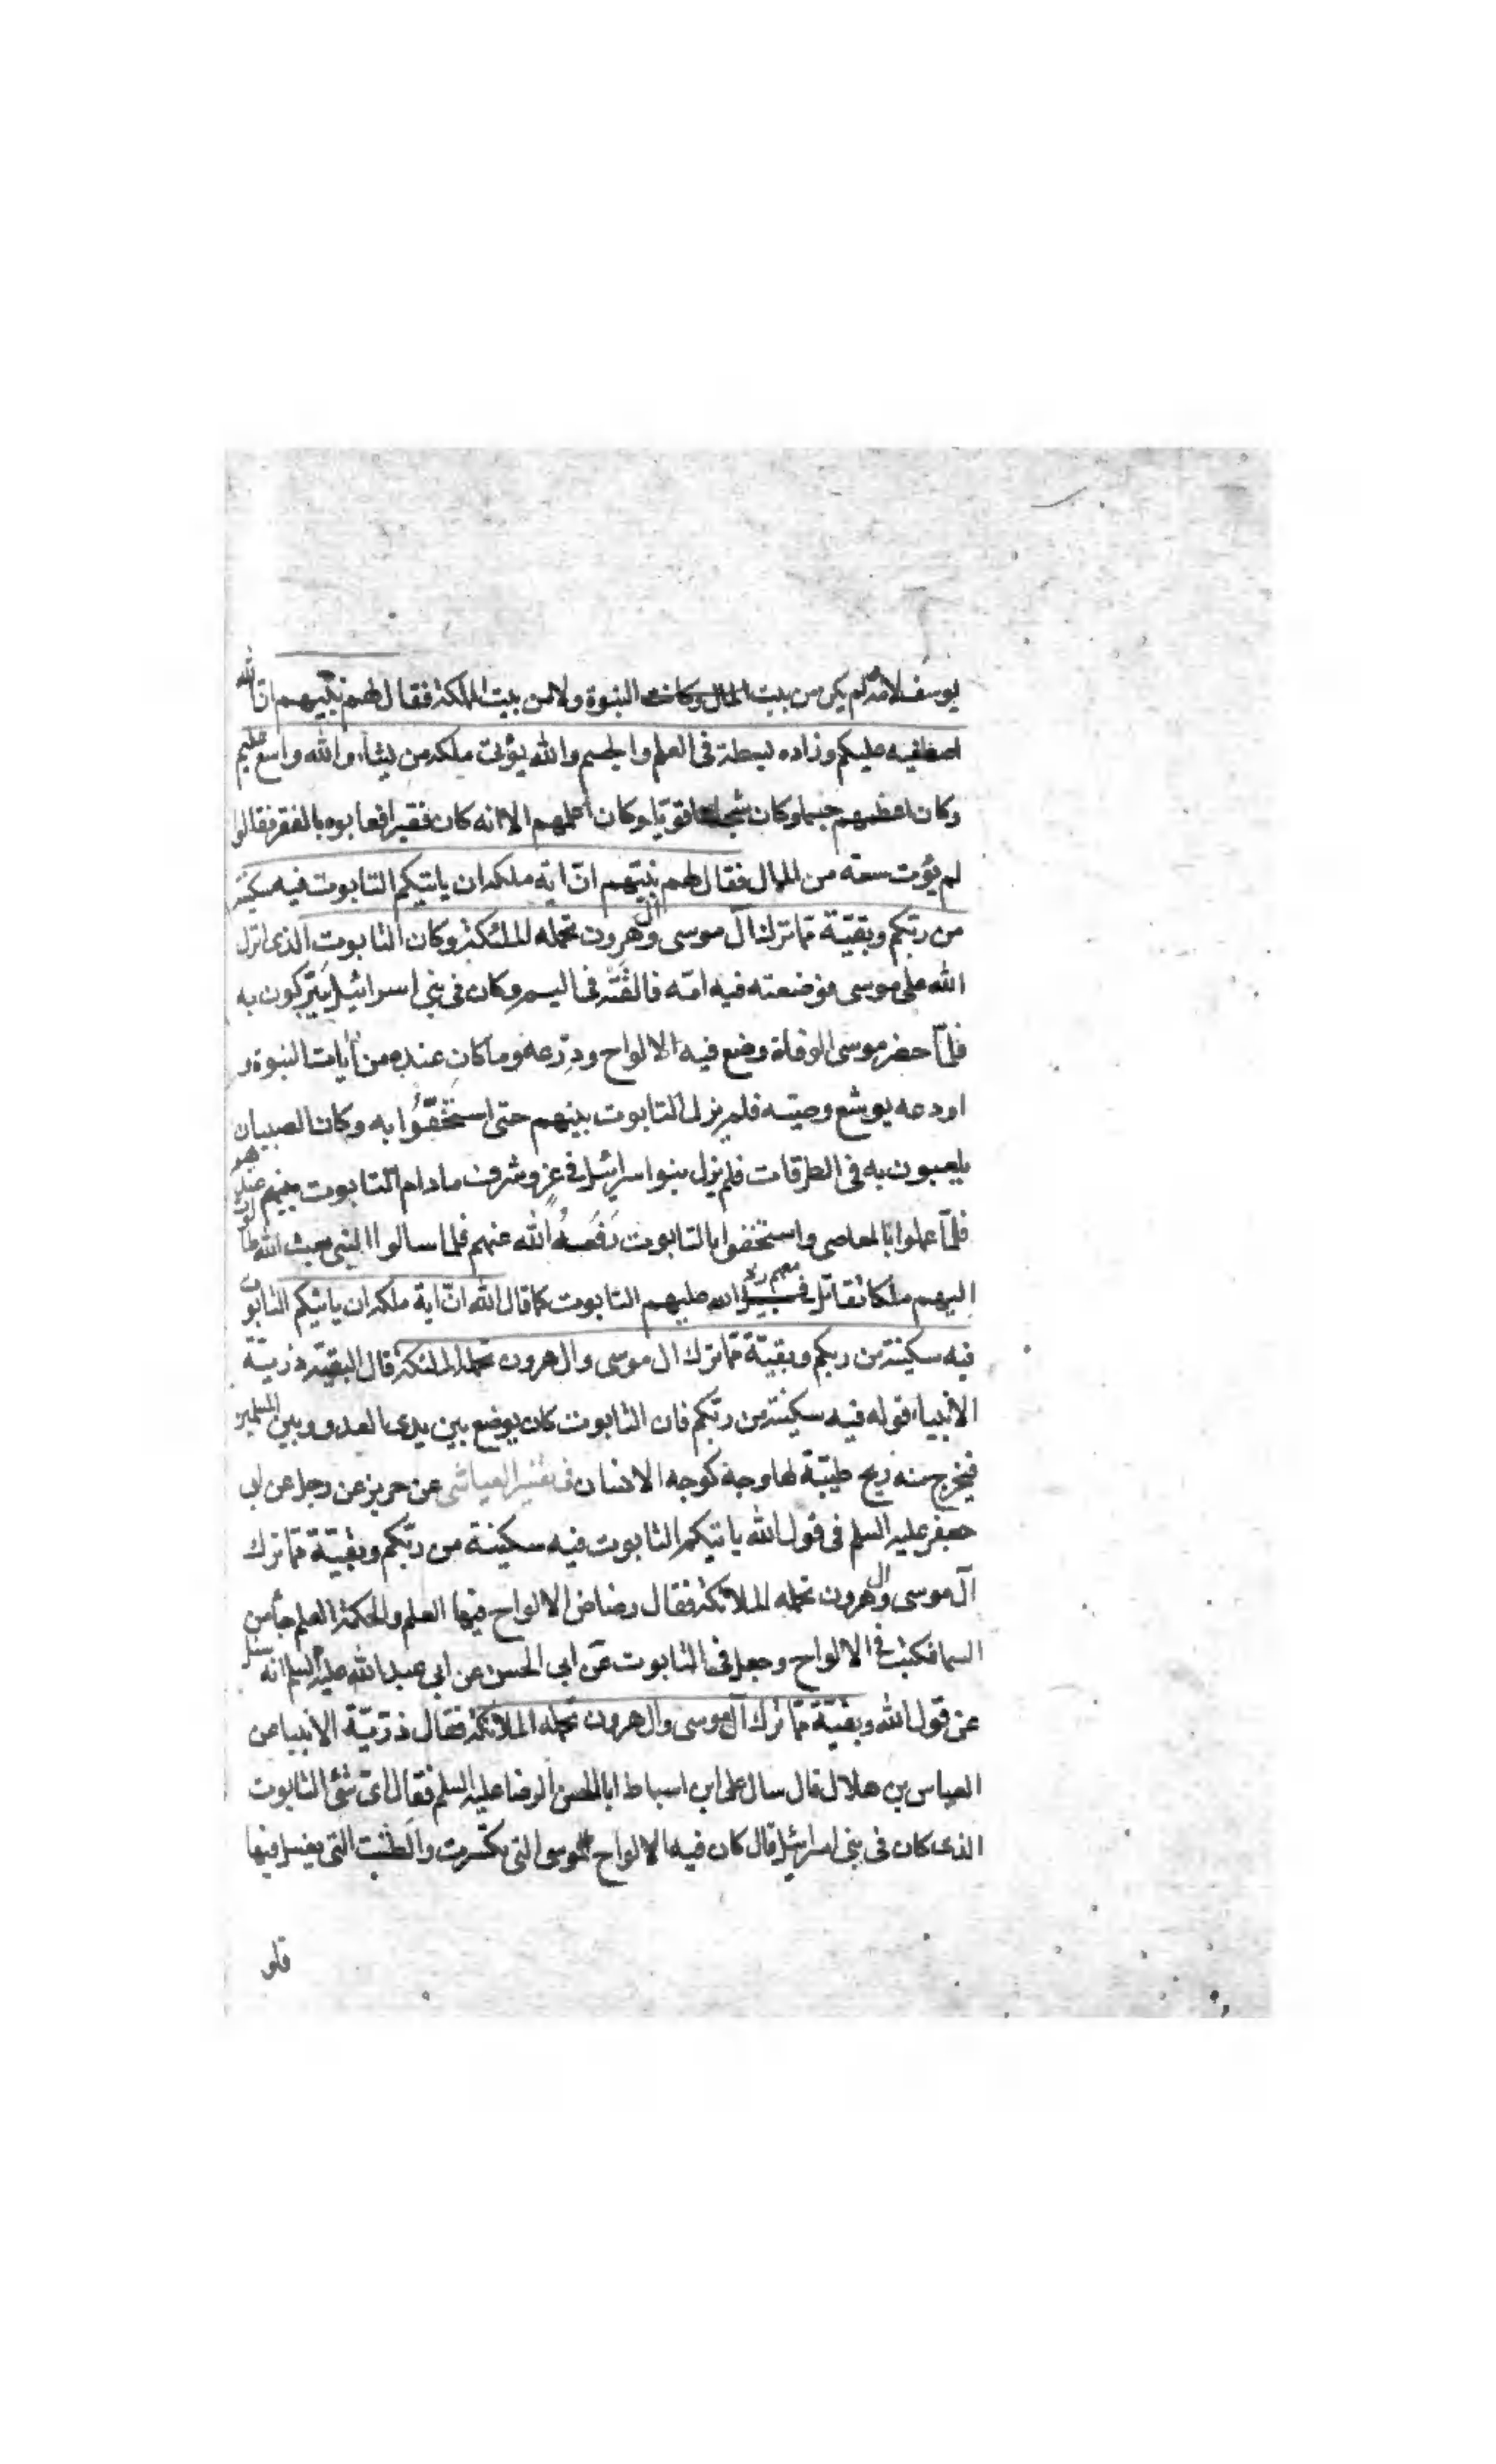 يوسف لانه لم يكن من بيت المال وكانت النبوة ولا من بيت المملكة فقال لهم نبيهم ان الله
اصطفيه عليكم وزاده بسطة فى العلم والجسم والله يؤتى ملكه من يشاء والله واسع عليم
وكان اعظمهم جسما وكان شجاعا قويا وكان اعلمهم الا انه كان فقيرا فعابوه بالفقر فقالوا
لم يؤت سعة من المال فقال لهم نبيّهم انّ اية ملكه ان ياتيكم التابوت فيه سكينة
من ربّكم وبقيّة ممّا ترك آل موسى وال هرون تحمله الملئكة وكان التابوت الذى انزل
الله على موسى فوضعته فيه امّه فالقته فى اليم وكان فى بنى اسرائيل يتبركون به
فلمّا حضر موسى الوفاة وضع فيه الالواح ودرعه وما كان عنده من آيات النبوة و
اودعه يوشع وصيّه فلم يزل التابوت بينهم حتى استخفّوا به وكان الصبيان
يلعبون به فى الطرقات فلم يزل بنوا اسرائيل فى عز وشرف مادام التابوت بينهم عندهم
فلمّا عملوا بالمعاصى واستخفوا بالتابوت رفعه الله عنهم فلما سالوا النبى بعث الله طالوت
اليهم ملكا نقاتل معهم رد الله عليهم التابوت كما قال الله انّ اية ملكه ان ياتيكم التابوت
فيه سكينة من ربكم وبقيّة ممّا ترك ال موسى وال هرون تحمله الملئكة قال البقية ذريّة
الانبياء قوله فيه سكينة من ربّكم فان التابوت كان يوضع بين يدى العدو وبين المسلمين
فيخرج منه ريح طيّبة لها وجه كوجه الانسان فى تفسير العياشى عن حريز عن رجل عن ابى
جعفر عليه السلم فى قول الله ياتيكم التابوت فيه سكينة من ربّكم وبقيّة ممّا ترك
آل موسى وال هرون تحمله الملائكة فقال رضاض الالواح فيها العلم والحكمة العلم جاء من
السما فكتب فى الالواح وجعل فى التابوت عن ابى الحسن عن ابى عبد الله عليه السلم انه سئل
عن قول الله وبقيّة ممّا ترك آل موسى وال هرون تحمله الملائكة فقال ذريّة الانبيا عن
العباس بن هلال قال سال على ابن اسباط ابا الحسن الرضا عليه السلم فقال اىّ شئ التابوت
الذى كان فى بنى اسرائيل قال كان فيه الالواح موسى التى تكسّرت والطشت التى يغسل فيها
قلو